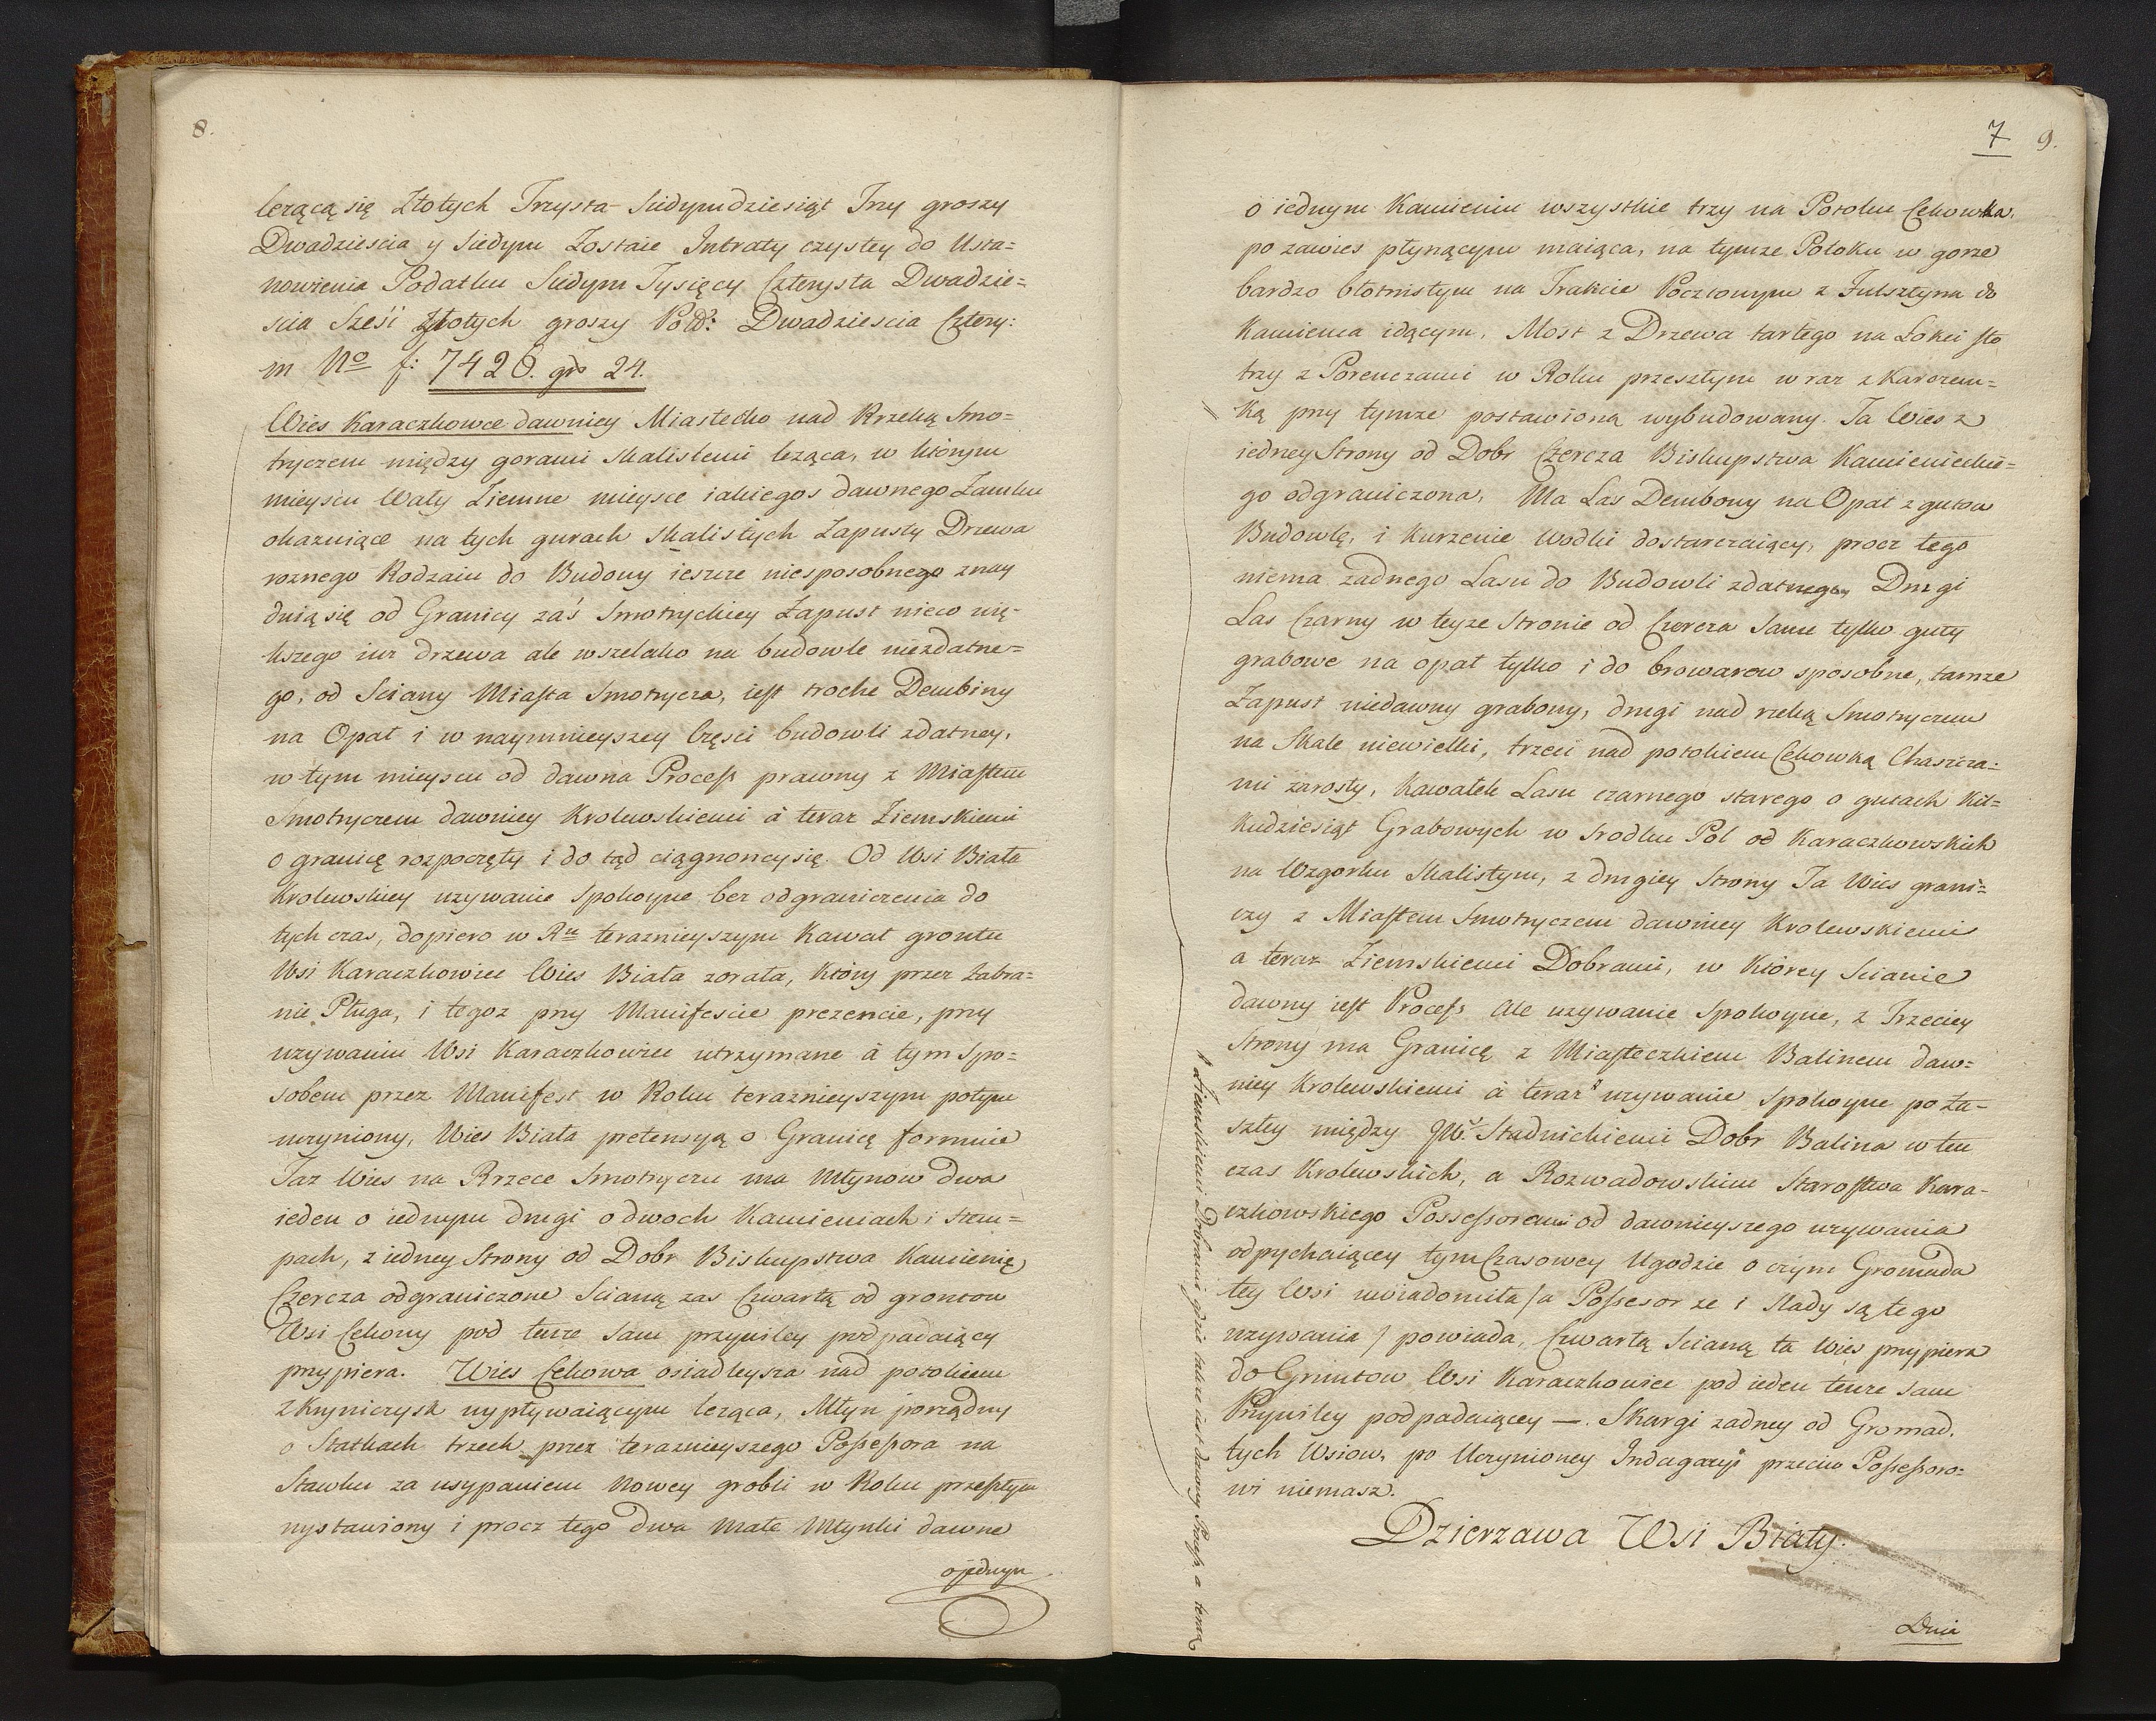 8.
lezącą się Złotych Trzysta Siedymdziesiąt Trzy groszy
Dwadziescia y Siedym Zostaie Intraty czystey do Usta=
nowienia Podatku Siedym Tysięcy Czterysta Dwadzie=
scia Sześć Złotych groszy Pold: Dwadziescia Cztery:
in No f: 7426. gr 24.
Wies Karaczkowce dawniey Miastecko nad Rzeką Smo=
tryczem między gorami skalistemi leząca, w którym
mieyscu Wały Ziemne mieysce iakiegos dawnego Zamku
okazuiące na tych gurach skalistych Zapusty Drzewa
roznego Rodzaiu do Budowy ieszcze niesposobnego znay
duią się od Granicy zaś Smotryckiey Zapust nieco wię-
kszego iuz drzewa ale wszelako na budowle niezdatne=
go, od Sciany Miasta Smotrycza, iest troche Dembiny
na Opał i w naymnieyszey Częsci budowli zdatney,
w tym mieyscu od dawna Process prawny z Miastem
Smotryczem dawniey Krolewskiemi à teraz Ziemskiemi
o granicę rozpoczęty i do tąd ciągnoncy się. Od Wsi Biała
Krolewskiey uzywanie spokoyne bez odgraniczenia do
tych czas, dopiero w Ru teraznieyszym Kawał grontu
Wsi Karaczkowiec Wies Biała zorała, Który przez zabra=
nie Pługa, i tegoz przy Manifescie prezencie, przy
uzywaniu Wsi Karaczkowiec utrzymane à tym spo=
sobem przez Manifest w Roku teraznieyszym potym
uczyniony, Wies Biała pretensyą o Granicę formuie
Taz Wies na Rzece Smotryczu ma Młynow dwa
ieden o iednym drugi o dwoch Kamieniach i stem=
pach, z iedney Strony od Dobr Biskupstwa Kamienie
Czercza odgraniczone Scianą zas Czwartą od grontow
Wsi Cekowy pod tenze sam przywiley podpadaiący
przypiera. Wies Cekowa osiadleysza nad potokiem
z Kryniczysk wypływaiącym leząca, Młyn porządny
o Statkach trzech przez teraznieyszego Possessora na
Stawku za usypaniem Nowey grobli w Roku przeszłym
wystawiony i procz tego dwa małe Młynki dawne
o jednym
7 9.
o iednym Kamieniu wszystkie trzy na Potoku Cekowka
po zawies płynącym maiąca, na tymze Potoku w gorze
bardzo błotnistym na Trakcie Pocztowym z Fulsztyna do
Kamienca idącym. Most z Drzewa tartego na Łokci sto
trzy z Porenczami w Roku przeszłym w raz z Karczem=
ką przy tymze postawioną wybudowany. Ta Wies z
iedney Strony od Dobr Czercza Biskupstwa Kamienieckie=
go odgraniczona, Ma Las Dembowy na Opał z gutow
Budowlę, i Kurzenie Wodki dostarczaiący, procz tego
niema zadnego Lasu do Budowli zdatnego, Drugi
Las Czarny w teyze Stronie od Czercza same tylko guty
grabowe na opał tylko i do browarow sposobne, tamze
Zapust niedawny grabowy, drugi nad rzeką Smotryczem
na Skale niewielki, trzeci nad potokiem Cekowką Chaszcza=
mi zarosły, Kawałek Lasu czarnego starego o gutach Kil=
kudziesiąt Grabowych w srodku Pol od Karaczkowskich
na Wzgorku skalistym, z drugiey Strony Ta Wies grani=
czy z Miastem Smotryczem dawniey Krolewskiemi
a teraz Ziemskiemi Dobrami, w Którey Scianie
dawny iest Process Ale uzywanie spokoyne, z Trzeciey
Strony ma Granicę z Miasteczkiem Balinem daw=
niey Krolewskiemi à teraz uzywanie spokoyne po za-
szłey między JW. Stadnickiemi Dobr Balina w ten
czas Krolewskich, a Rozwadowskim Starostwa Kara-
czkowskiego Possessorami od dawnieyszego uzywania
odpychaiącey tymczasowey Ugodzie o czym Gromada
tey Wsi uwiadomiła / a Possesor ze i slady są tego
uzywania / powiada, Czwartą Scianą ta Wies przypiera
do Gruntow Wsi Karaczkowiec pod ieden tenze sam
Przywiley podpadaiącey —. Skargi zadney od Gromad.
tych Wsiow, po Uczynioney Indagacyi przeciw Possessoro=
wi niemasz.
Ziemskiemi Dobrami gdzie takze iest dawny Process a teraz
Dzierzawa Wsi Biały.
Dnia